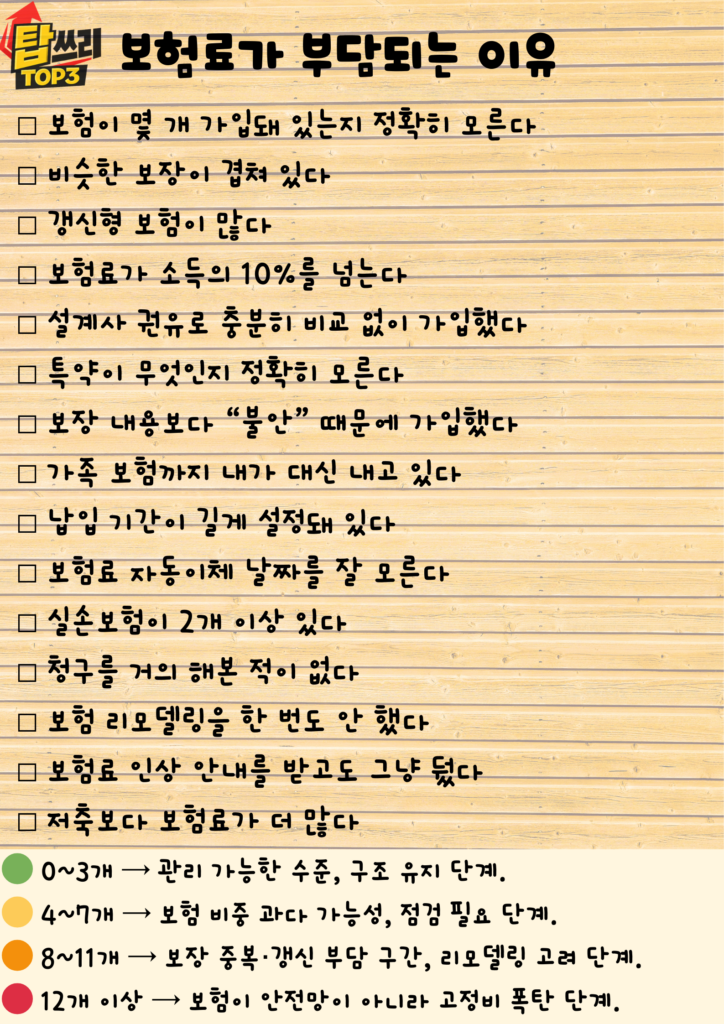 탑쓰리
TOP3
보험료가 부담되는 이유
□ 보험이 몇 개 가입돼 있는지 정확히 모른다
□ 비슷한 보장이 겹쳐 있다
□ 갱신형 보험이 많다
□ 보험료가 소득의 10%를 넘는다
□ 설계사 권유로 충분히 비교 없이 가입했다
□ 특약이 무엇인지 정확히 모른다
□ 보장 내용보다 “불안” 때문에 가입했다
□ 가족 보험까지 내가 대신 내고 있다
□ 납입 기간이 길게 설정돼 있다
□ 보험료 자동이체 날짜를 잘 모른다
□ 실손보험이 2개 이상 있다
□ 청구를 거의 해본 적이 없다
□ 보험 리모델링을 한 번도 안 했다
□ 보험료 인상 안내를 받고도 그냥 뒀다
□ 저축보다 보험료가 더 많다
0~3개 → 관리 가능한 수준, 구조 유지 단계.
4~7개 → 보험 비중 과다 가능성, 점검 필요 단계.
8~11개 → 보장 중복·갱신 부담 구간, 리모델링 고려 단계.
12개 이상 → 보험이 안전망이 아니라 고정비 폭탄 단계.